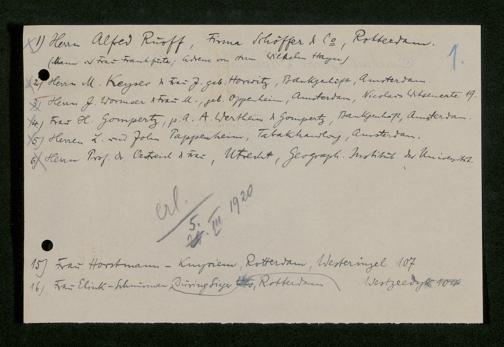 1) Herrn Alfred Ruoff, Firma Schöffer & Co, Rotterdam.
1.
2) Herrn M. Keyser & Frau J. geb. Horwitz, Bankgeschäft, Amsterdam.
3) Herrn J. Wormser & Frau M., geb. Oppenheim, Amsterdam, Nicolaas Witsenkade 19.
4) Frau H. Gompertz, p. a. A. Wertheim & Gompertz, Bankgeschäft, Amsterdam.
5) Herren L. und John Pappenheim, Tabakhandlung, Amsterdam.
6) Herrn Prof. Dr. Oestreich & Frau, Utrecht, Geograph. Institut der Universität.
erl.
5. III 1920
15) Frau Horstmann - Rotterdam, Westersingel 107
16) Frau Elink-Schuurman, Rotterdam Westzeedijk